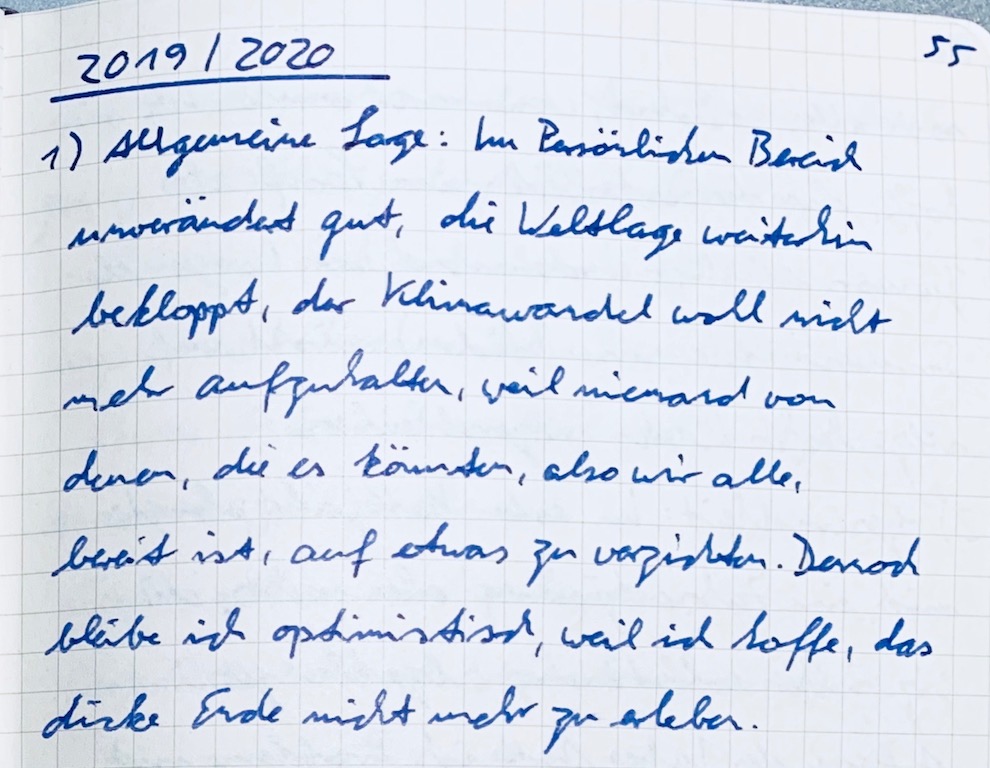 55
2019 / 2020
1) Allgemeine Lage: Im Persönlichen Bereich
unverändert gut, die Weltlage weiterhin
bekloppt, der Klimawandel wohl nicht
mehr aufzuhalten, weil niemand von
denen, die es könnten, also wir alle,
bereit ist, auf etwas zu verzichten. Dennoch
bleibe ich optimistisch, weil ich hoffe, das
dicke Ende nicht mehr zu erleben.